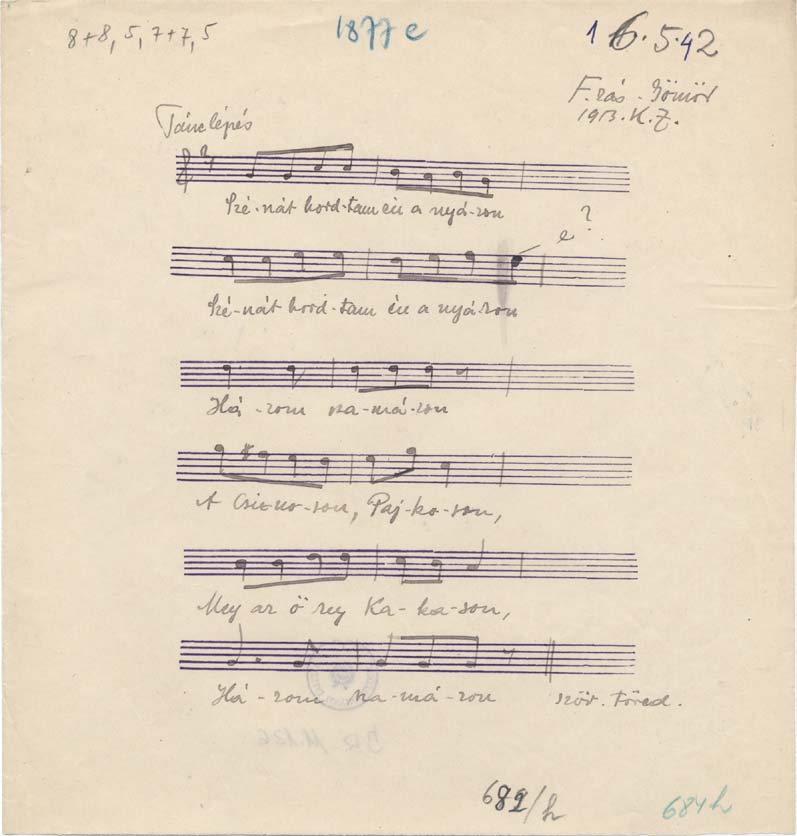 8+8, 5, 7+7, 5
1877 e
16.5.42
F.rás. Gömör
1913. K.Z.
Tánclépés
Szé-nát hord-tam én a nyá-ron
e ?
Szé-nát hord-tam én a nyá-ron
Há-rom sza-má-ron
A Csi-no-son, Paj-ko-son,
Meg az ö reg Ka-ka-son,
Há-rom sza-má-ron
szöv. töred.
689/h
684h